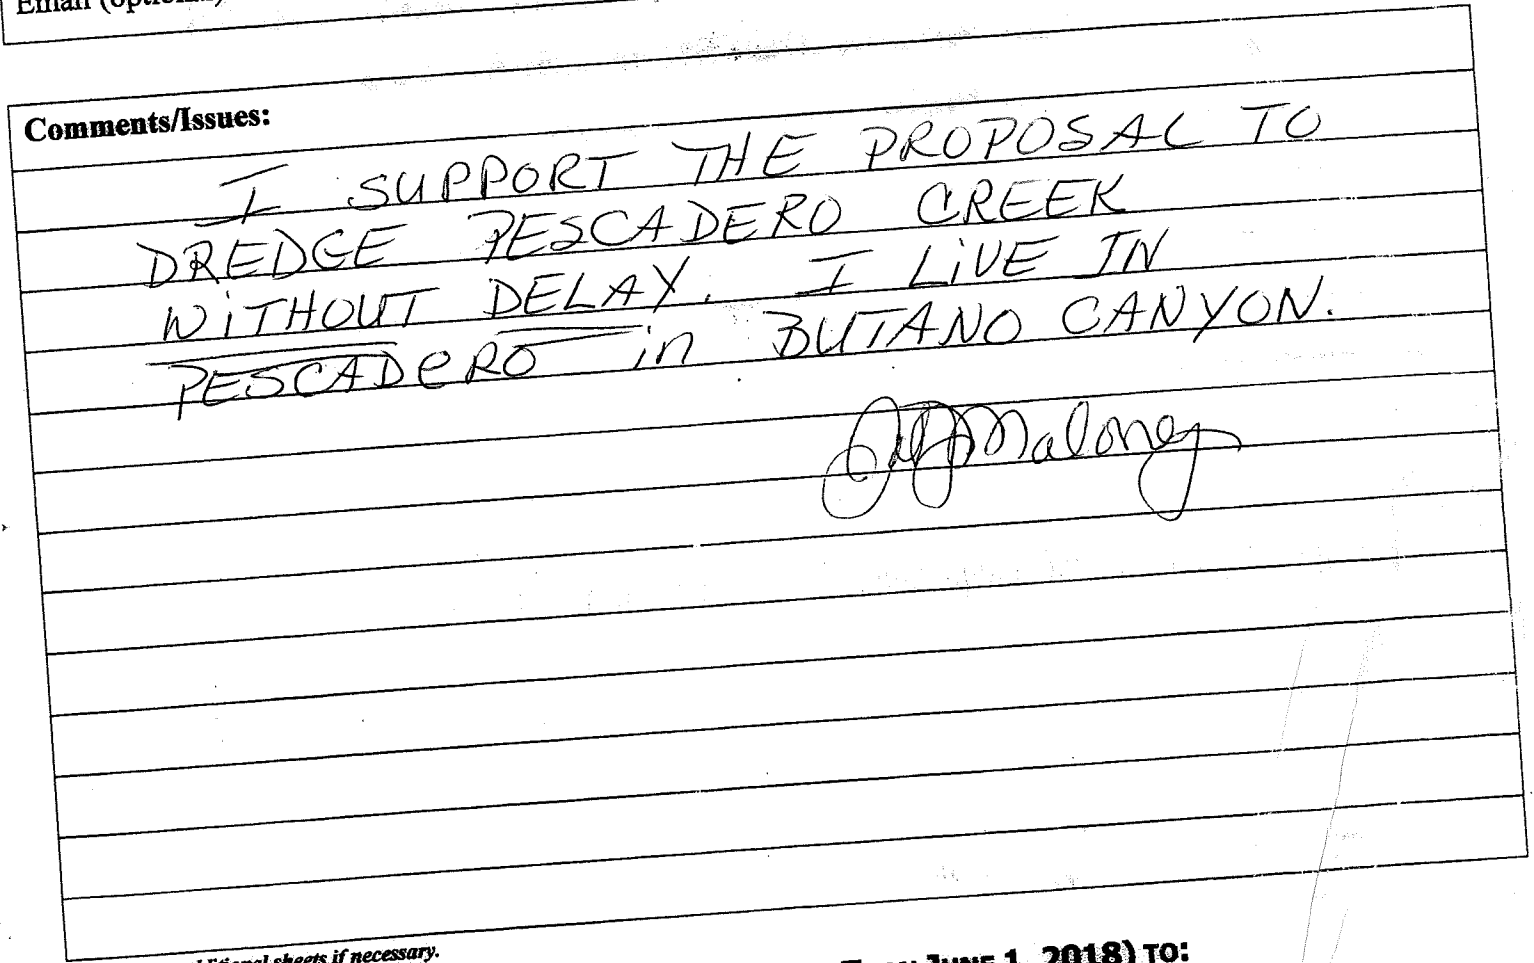 Email (optional)
Comments/Issues:
I SUPPORT THE PROPOSAL TO
DREDGE PESCADERO CREEK
WITHOUT DELAY. I LIVE IN
PESCADERO in BUTANO CANYON.
Maloney
sheets if necessary.
JUNE 1, 2018) TO: